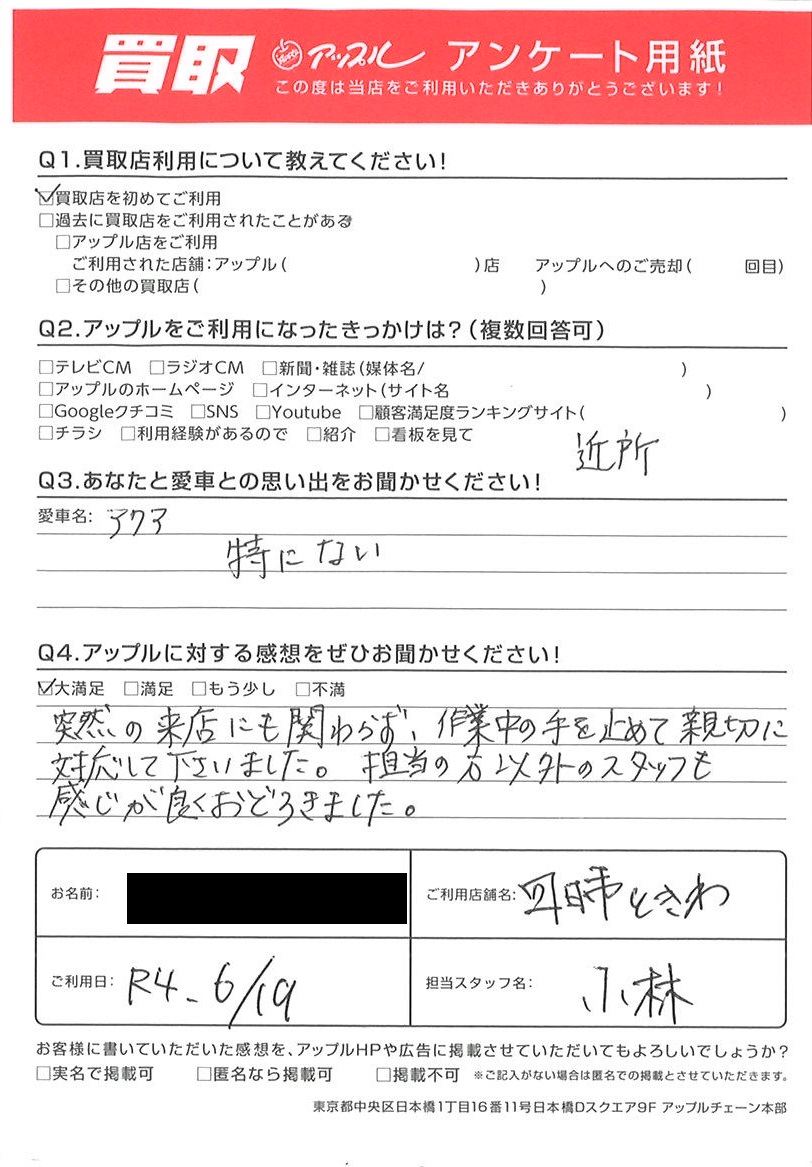 買取 Apple アップル アンケート用紙
この度は当店をご利用いただきありがとうございます!
Q1.買取店利用について教えてください!
☑買取店を初めてご利用
□過去に買取店をご利用されたことがある
□アップル店をご利用
ご利用された店舗:アップル( )店 アップルへのご売却( 回目)
□その他の買取店( )
Q2.アップルをご利用になったきっかけは?(複数回答可)
□テレビCM □ラジオCM □新聞・雑誌(媒体名/ )
□アップルのホームページ □インターネット(サイト名 )
□Googleクチコミ □SNS □Youtube □顧客満足度ランキングサイト( )
□チラシ □利用経験があるので □紹介 □看板を見て
近所
Q3.あなたと愛車との思い出をお聞かせください!
愛車名: アクア
特にない
Q4.アップルに対する感想をぜひお聞かせください!
☑大満足 □満足 □もう少し □不満
突然の来店にも関わらず、作業中の手を止めて親切に
対応して下さいました。担当の方以外のスタッフも
感じが良くおどろきました。
お名前:
ご利用店舗名: 四日市ときわ
ご利用日: R4. 6/19
担当スタッフ名: 小林
お客様に書いていただいた感想を、アップルHPや広告に掲載させていただいてもよろしいでしょうか?
□実名で掲載可 □匿名なら掲載可 □掲載不可 ※ご記入がない場合は匿名での掲載とさせていただきます。
東京都中央区日本橋1丁目16番11号日本橋Dスクエア9F アップルチェーン本部